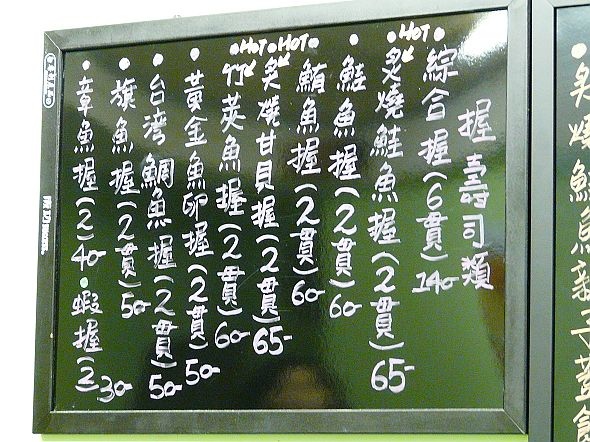 握壽司類
•綜合握(6貫)140
•HOT 炙燒鮭魚握(2貫)65-
•鮭魚握(2貫)60
•鮪魚握(2貫)60
•HOT 炙燒甘貝握(2貫)65-
•HOT 竹莢魚握(2貫)60
•黃金魚卵握(2貫)50
•台湾鯛魚握(2貫)50
•旗魚握(2貫)50
•章魚握(2)40 •蝦握(2)30
•炙燒鮭魚親子蓋飯